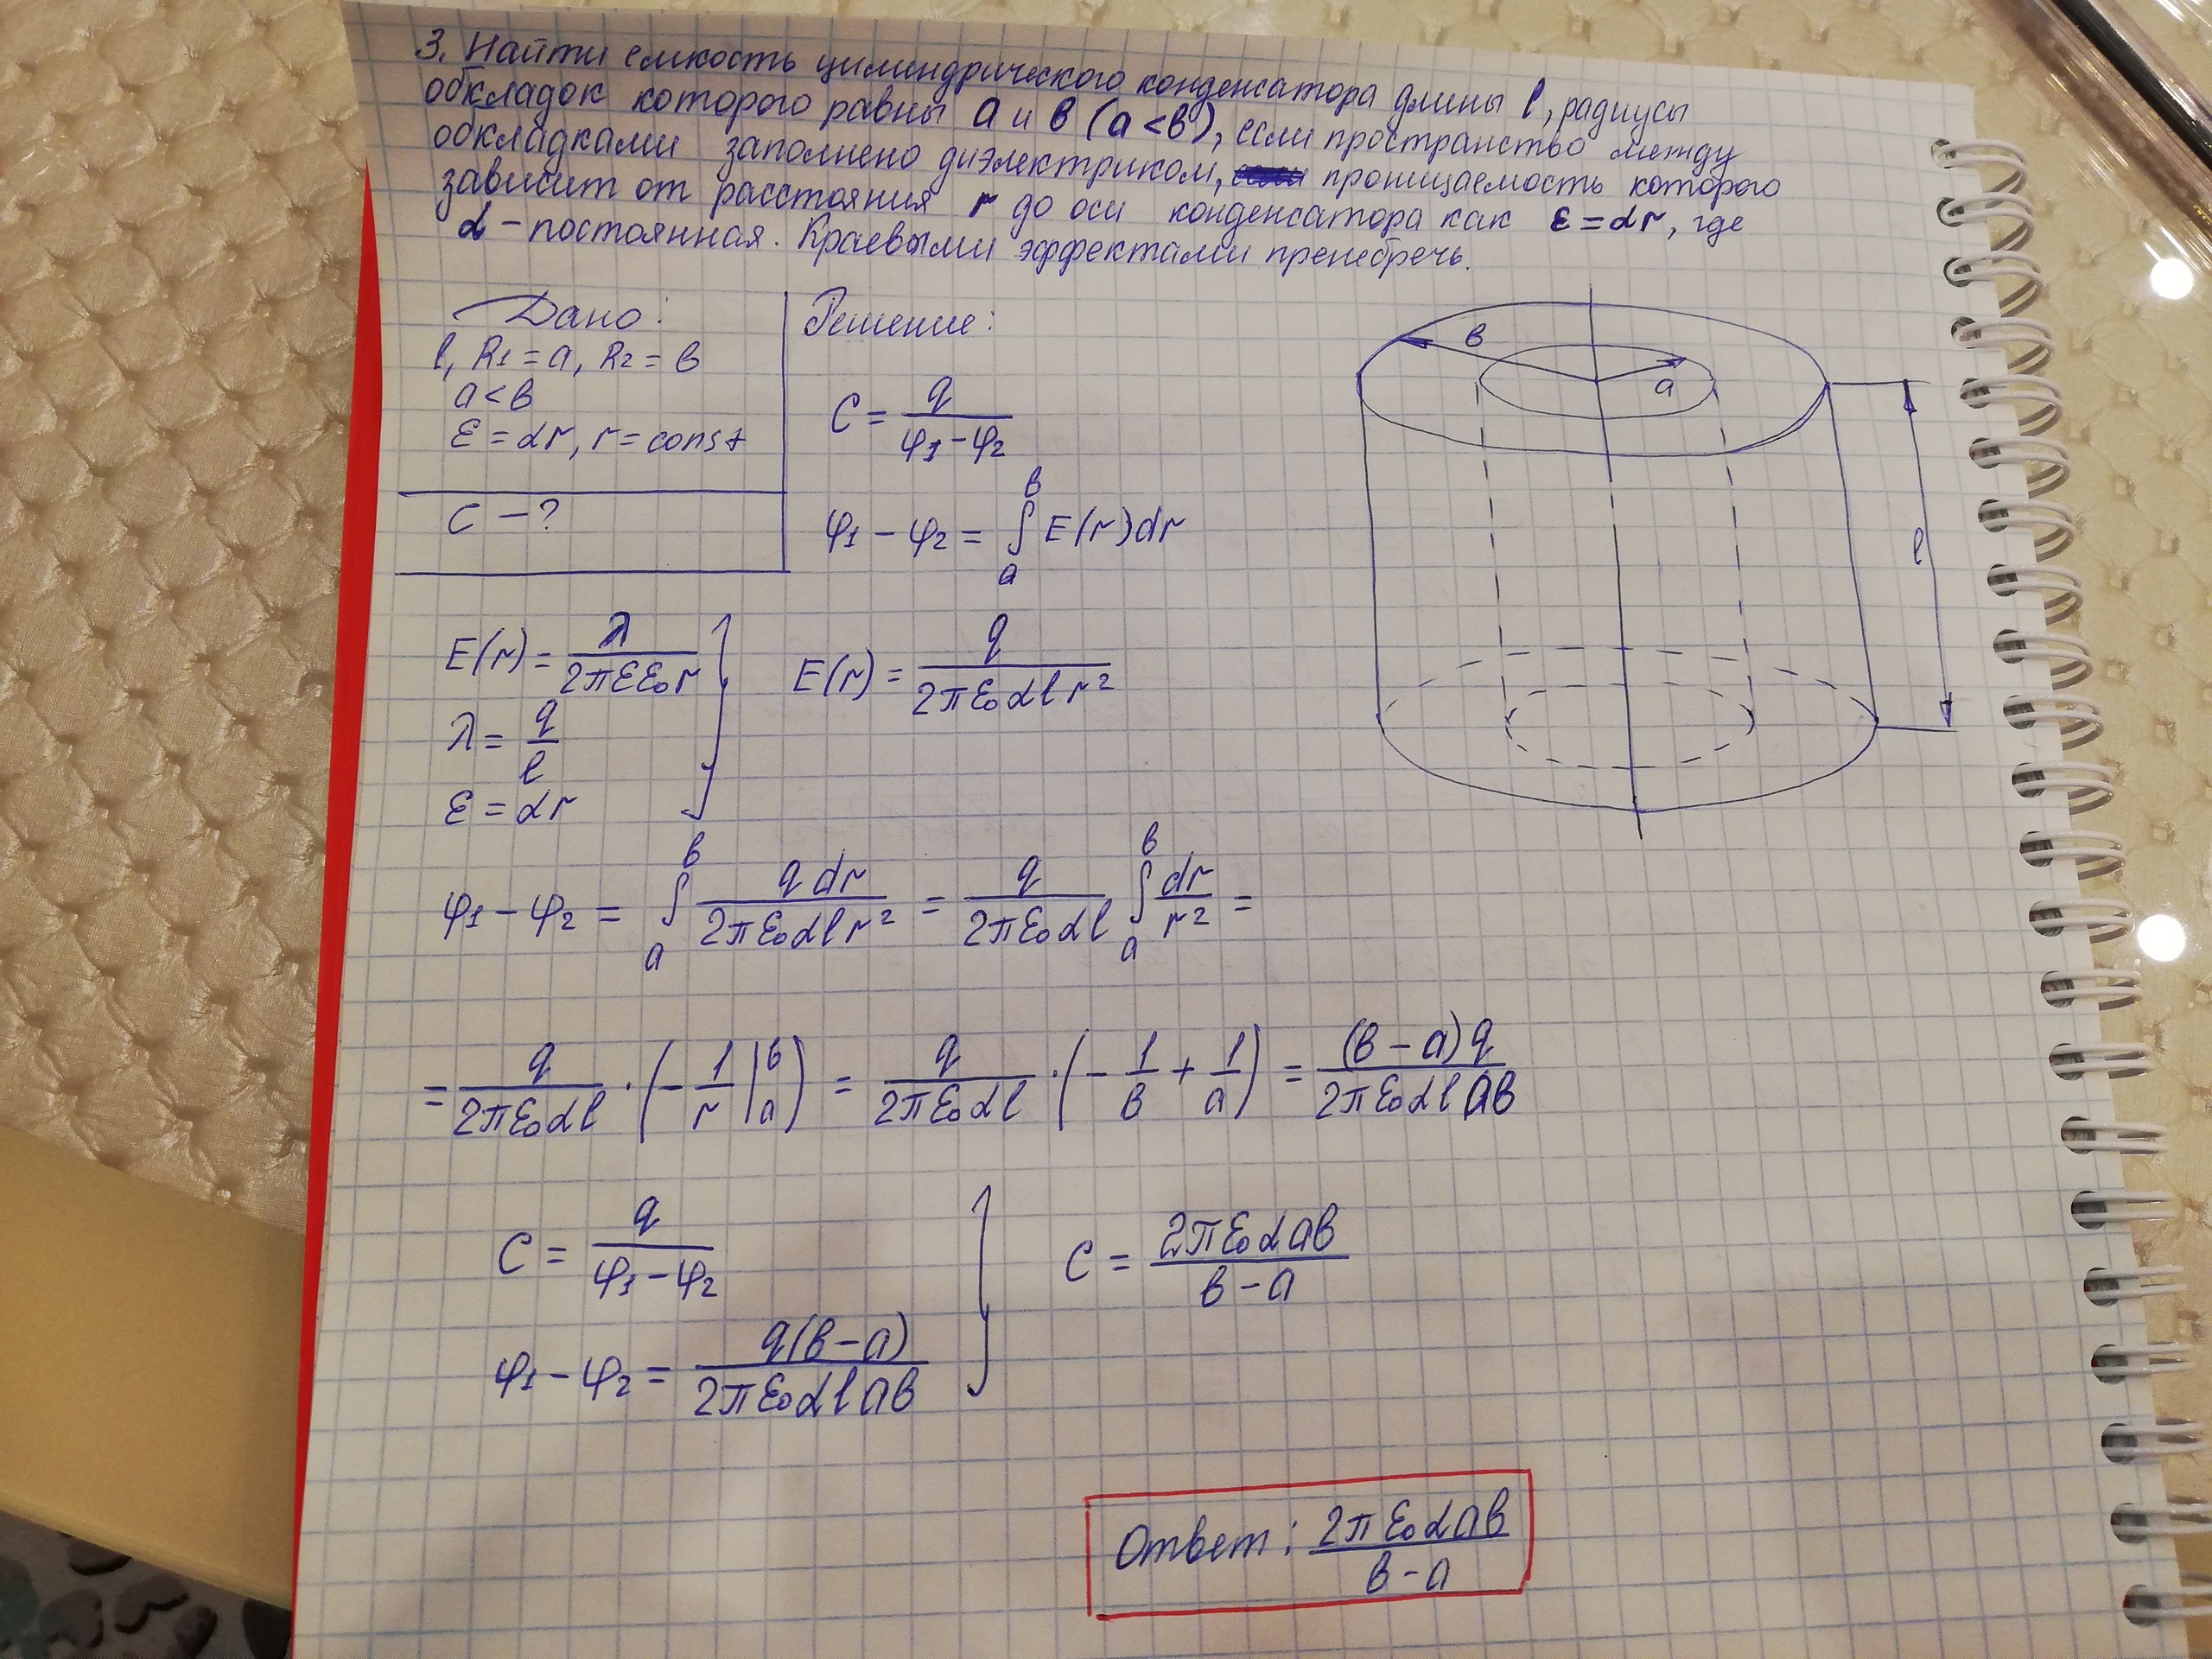 3. Найти емкость цилиндрического конденсатора длины l, радиусы
обкладок которого равны a и в (a<в), если пространство между
обкладками заполнено диэлектриком, проницаемость которого
зависит от расстояния r до оси конденсатора как ε=αr, где
α - постоянная. Краевыми эффектами пренебречь.
Дано:
l, R₁=a, R₂=в
a<в
ε=αr, r=const
C-?
Решение:
C = q/(φ₁-φ₂)
φ₁-φ₂ = ∫ₐᵇ E(r)dr
в
a
l
E(r) = λ/(2πεε₀r)
λ = q/l
ε=αr
E(r) = q/(2πε₀αlr²)
φ₁-φ₂ = ∫ₐᵇ qdr/(2πε₀αlr²) = q/(2πε₀αl) ∫ₐᵇ dr/r² =
= q/(2πε₀αl) · (-1/r |ₐᵇ) = q/(2πε₀αl) · (-1/в + 1/a) = (в-a)q/(2πε₀αlaв)
C = q/(φ₁-φ₂)
φ₁-φ₂ = q(в-a)/(2πε₀αlaв)
C = 2πε₀αaв/(в-a)
Ответ: 2πε₀αaв/(в-a)